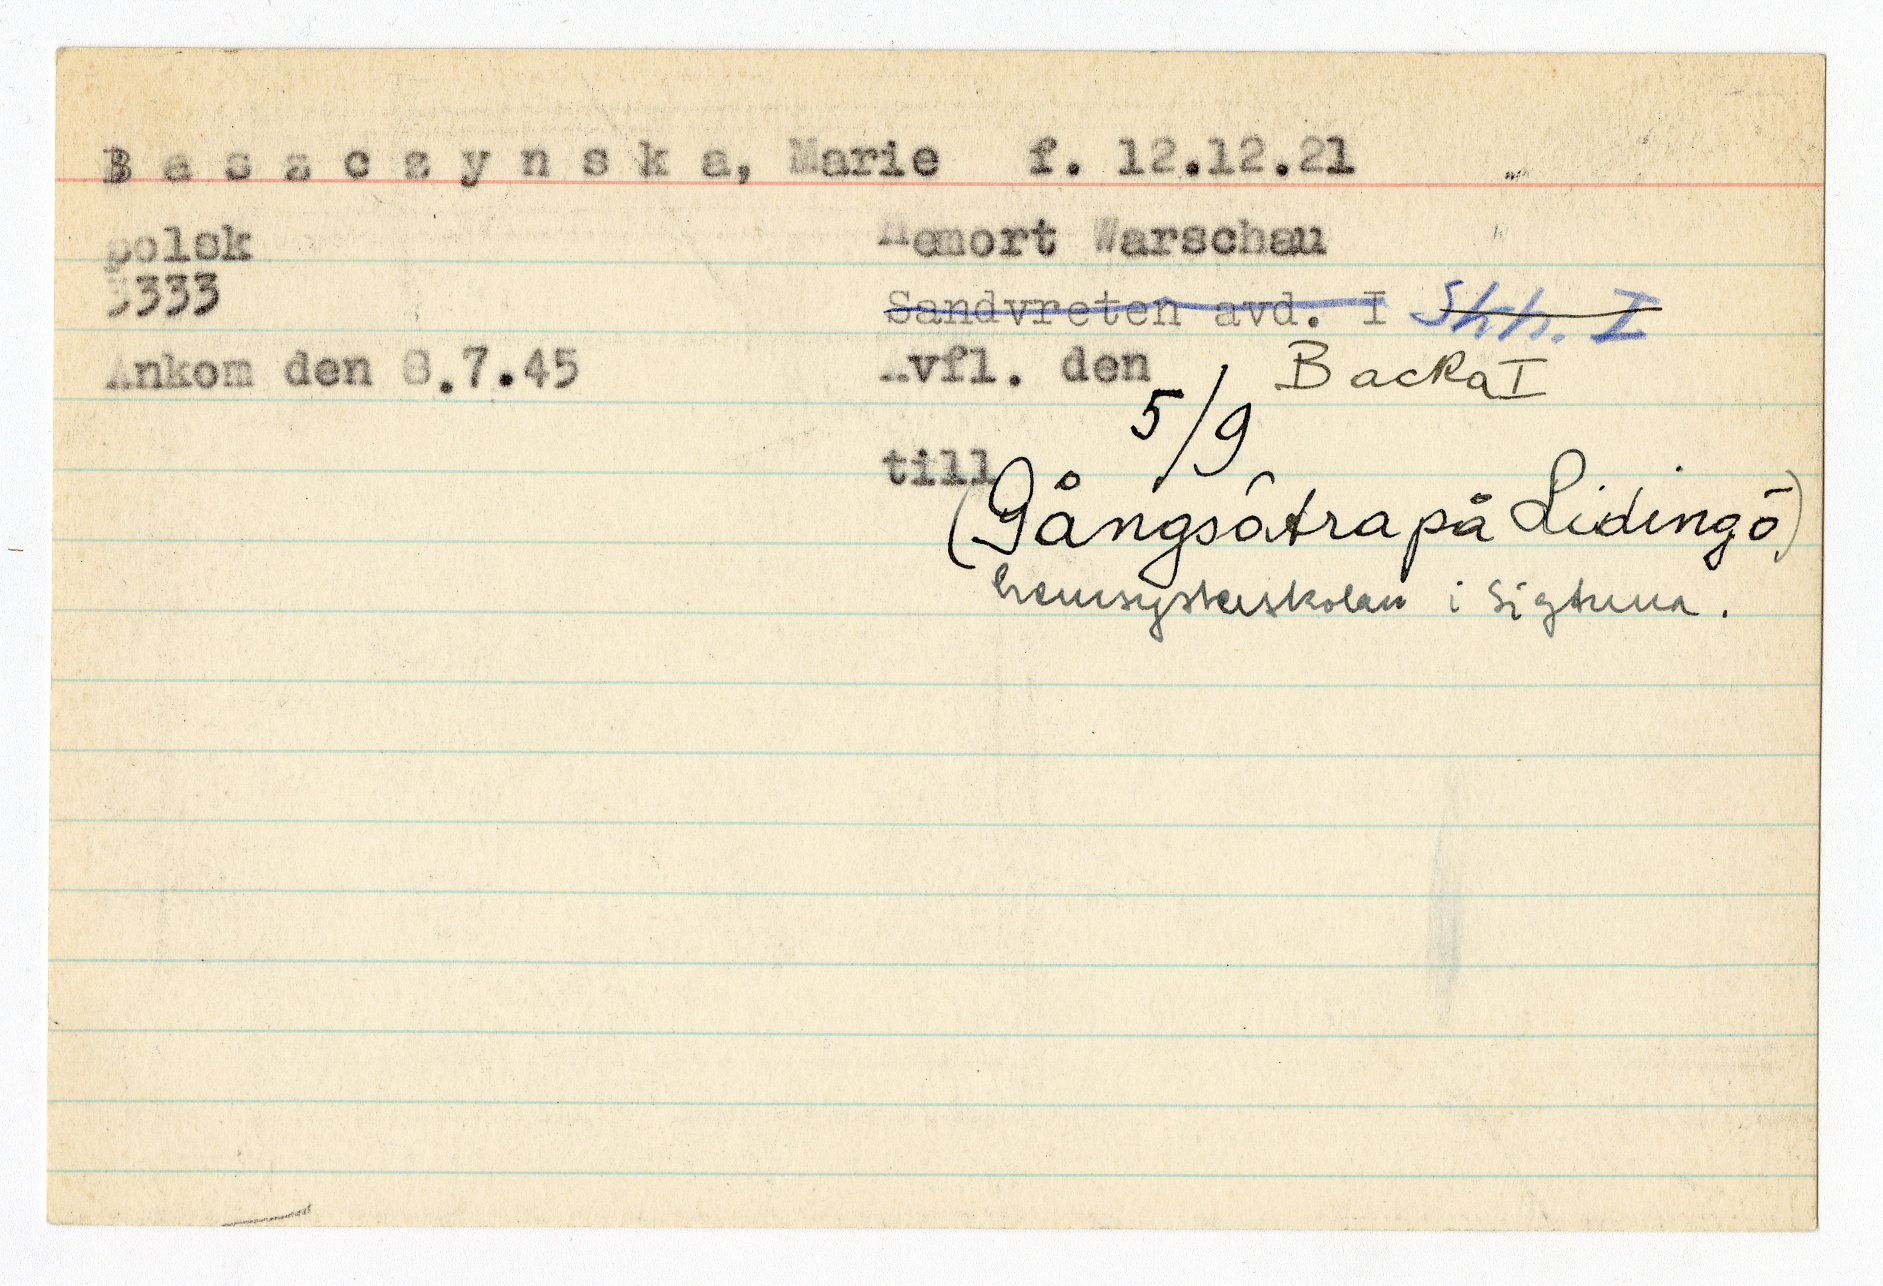 B e s z c z y n s k a, Marie f. 12.12.21
polsk Hemort Warschau
3333 Sandvreten avd. I Skh. I
Ankom den 8.7.45 Avfl. den Backa I
5/9
till
(Gångsätra på Lidingö)
hemsysterskolan i Sigtuna.